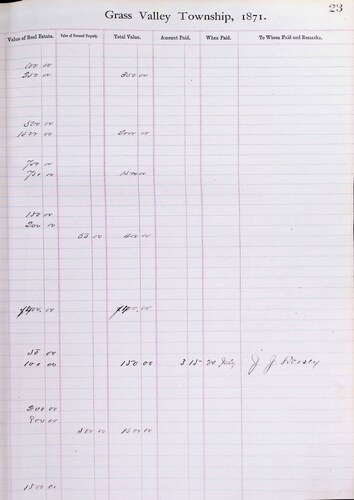 23
Grass Valley Township, 1871.
Value of Real Estate. Value of Personal Property. Total Value. Amount Paid. When Paid. To Whom Paid and Remarks.
100 00
250 00 350 00
500 00
1500 00 2000 00
700 00
700 00
180 00
200 00
50 00 400 00
50 00
100 00 150 00 3 15 20 July J J
200 00
800 00
800 00 1800 00
1500 00